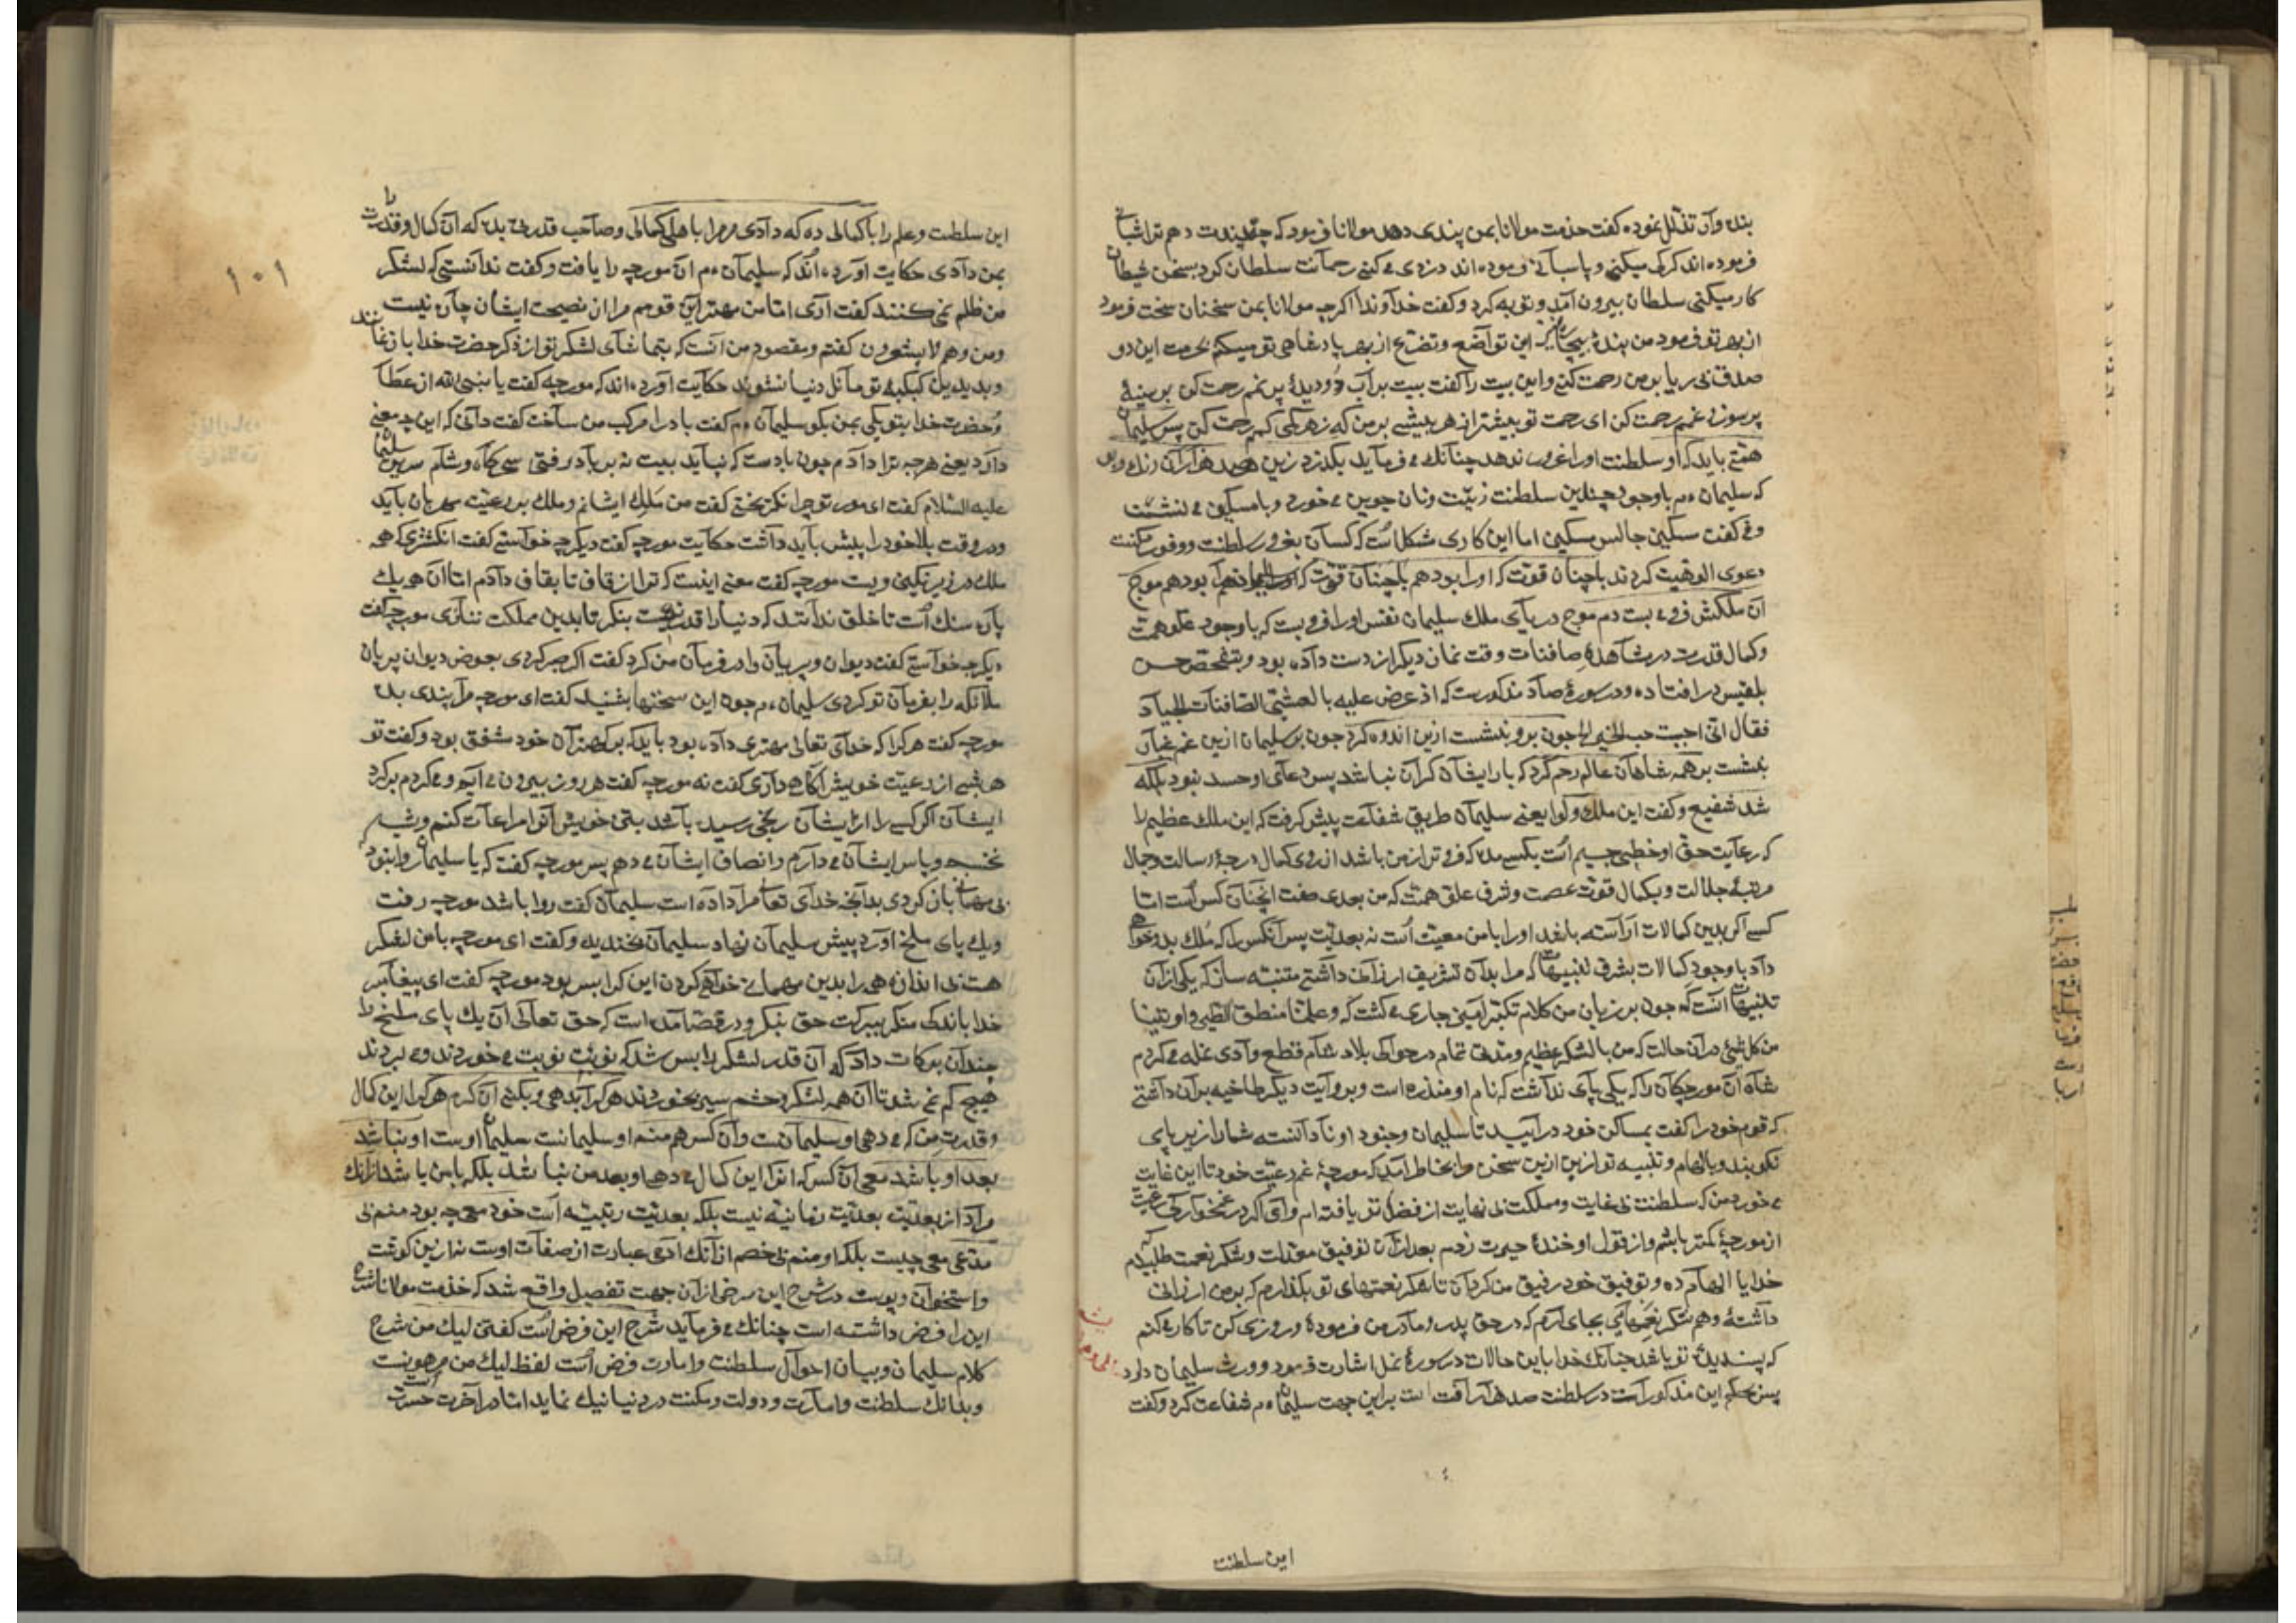 بنده وار تذلل نموده گفت حذمت مولانا بمن پندی دهد مولانا فرمود که چه پندت دهم ترا شبانی
فرموده اند کرکی میکنی و پاسبانی فرموده اند دزدی می کنی رحمانت سلطان کرد بسخن شیطان
کار میکنی سلطان بیرون آمد و توبه کرد و کفت خداوندا اکرچه مولانا بمن سخنان سخت فرمود
از بهر تو فرمود من بنده بیچاره این تواضع و تضرع از بهر پادشاهی تو میکنم بحرمت این دو
صدق بی ریا بر من رحمت کن و این بیت را کفت بیت بر آب دو دیدۀ پر نمم رحمت کن بر سینۀ
پر سوز و غمم رحمت کن ای رحمت تو بیشتر از هر بیشی بر من که ز هر کمی کمم رحمت کن پس سلیمان
همتی باید که او سلطنت او را غرور ندهد چنانک می فرماید بکذرد زین صد هزاران رنک و بو
که سلیمان ءم باوجود چندین سلطنت زینت و نان جوین می خورد و با مسکین می نشست
و می کفت مسکین جالس مسکین اما این کاری مشکل است که کسان بغرور سلطنت و وفور مکنت
دعوی الوهیت کردند باچنان قوت که او را بود هم باچنان قوت که او را بود هم موج
آن ملکش فرو می بست دم موج دریای ملک سلیمان نفس او را فرو بست که باوجود علو همت
و کمال قدرت در مشاهدۀ صافنات وقت نماز دیکر از دست داده بود و بتفحص حسن
بلقیس در افتاده و در سورۀ صاد مذکورست که اذ عرض علیه بالعشی الصافنات الجیاد
فقال انی احببت حب الخیر الخ چون برو بنشست ازین اندوه کرد چون بر سلیمان ازین غم غبار
بنشست بر همه شاهان عالم رحم کرد که بار ایشان کران نباشد پس دعای او حسد نبود بلکه
شد شفیع و کفت این ملک و لوا یعنی سلیمان طریق شفاعت پیش کرفت که این ملک عظیم را
که رعایت حق او خطبی جسیم است بکسی مده که فروتر از من باشد از روی کمال درجۀ رسالت و جمال
مرتبۀ جلالت و بکمال قوت عصمت و شرف علو همت که من بعدی صفت انچنان کس است اما
کسی اکر بدین کمالات آراسته باشد او را با من معیت است نه بعدیت پس آنکس را که ملک بدو خواهی
داد باوجود کمالات بشرف تنبیهات که مرا بدان تشریف ارزانی داشتی متنبه ساز که یکی از آن
تنبیهات آنست که چون بر زبان من کلام تکبر آمیز جاری می کشت که و علمنا منطق الطیر و اوتینا
من کل شئ در آن حالت که من با لشکر عظیم و مدتی تمام در حوالی بلاد شام قطع وادی نمله می کردم
شاه آن مورچکان را که یکی پای نداشت که نام او منذره است و بروایت دیکر طاخیه بران داشتی
که قوم خود را کفت بمساکن خود درآیید تا سلیمان و جنود او نادانسته شما را زیر پای
نکوبند و بالهام و تنبیه تو ازین سخن مرا بخاطر آمد که مورچۀ غم رعیت خود تا این غایت
می خورد من که سلطنت بی غایت و مملکت بی نهایت از فضل تو یافته ام وای اکر در غمخوارکی رعیت
از مورچۀ کمتر باشم و از قول او خندۀ حیرت زدم بعد از آن توفیق معدلت و شکر نعمت طلبیدم که
خدایا الهام ده و توفیق خود رفیق من کردان تا شکر نعمتهای تو بکذارم که بر من ارزانی
داشتۀ و هم شکر نعمتهایی بجای آرم که در حق پدر و مادر من فرمودۀ و روزی کن تا کاری کنم
که پسندیدۀ تو باشد چنانک خدا باین حالات در سورۀ نمل اشارت فرمود و ورث سلیمان داود
پس بحکم این مذکور است در سلطنت صد هزار آفت است براین جهت سلیمان ءم شفاعت کرد و کفت
این سلطنت
این سلطنت و علم را با کمالی ده که دادی مرمرا با اهلی کمالی و صاحب قدرتی بده که آن کمال و قدرت را
بمن دادی حکایت آورده اند که سلیمان ءم آن مورچه را یافت و کفت ندانستی که لشکر
من ظلم نمی کنند کفت آری اما من مهتر این قومم مرا از نصیحت ایشان چاره نیست
و من و هم لا یشعرون کفتم و مقصود من آنست که بتماشای لشکر تو از ذکر حضرت خدا باز نمانند
و بدیدن کبکبۀ تو مائل دنیا نشوند حکایت آورده اند که مورچه کفت یا نبی الله از عطا
و حضرت خدا بتو یکی بمن بکو سلیمان ءم کفت باد را مرکب من ساخت کفت دانی که این چه معنی
دارد یعنی هرچه ترا دادم چون بادست که نپاید بیت نه بر باد رفتی سحرکاه و شام سریر سلیمان
علیه السلام کفت ای مور تو چرا نکریختی کفت من ملک ایشانم و ملک بر رعیت مهربان باید
و در وقت بلا خود را پیش باید داشت حکایت مورچه کفت دیکر چه خواستی کفت انکشتری که همه
ملک در زیر نکین ویست مورچه کفت معنی اینست که ترا از قاف تا بقاف دادم اما آن همه بیک
پاره سنک است تا خلق ندانند که دنیا را قدر نیست بنکر تا بدین مملکت ننازی مورچه کفت
دیکر چه خواستی کفت دیوان و پریان را در فرمان من کرد کفت اکر صبر کردی بعوض دیوان پریان
ملائکه را بفرمان تو کردی سلیمان ءم چون این سخنها بشنید کفت ای مورچه مرا پندی بده
مورچه کفت هرکرا که خدای تعالی مهتری داده بود باید که بر کهتران خود مشفق بود و کفت تو
هر شبی از رعیت خویش آکاهی داری کفت نه مورچه کفت هر روز بیرون می آیم و می کردم بر کرد
ایشان اکر کسی را از ایشان رنجی رسیده باشد بتن خویش آنرا مراعات کنم و شب
نخسبم و پاس ایشان می دارم و انصاف ایشان می دهم پس مورچه کفت که یا سلیمان روا بود که
بی مهمانی باز کردی بدانچه خدای تعالی مرا داده است سلیمان کفت روا باشد مورچه رفت
و یک پای ملخ آورد پیش سلیمان نهاد سلیمان بخندید و کفت ای مورچه با من لشکر
هست ندانی اندازه همه را بدین مهمانی خواهی کردن این کرا بس بود مورچه کفت ای پیغامبر
خدا باندک منکر ببرکت حق بنکر و در قصه آمده است که حق تعالی آن یک پای ملخ را
چندان برکات داد که آن قدر لشکر را بس شد که نوبت نوبت می خوردند و می بردند
هیچ کم نمی شد تا آن همه لشکر و حشم سیر بخوردند هرکرا بدهی و بکنی آن کرم هرکرا این کمال
و قدرت من که می دهی او سلیمانست و آن کس هم منم او سلیمانست سلیمان اوست او نباشد
بعد او باشد معی آن کس که او را این کمال می دهی او بعد من نباشد بلکه با من باشد زانک
مراد از بعدیت بعدیت زمانیه نیست بلکه بعدیت رتبیه است خود معی چه بود منم بی
مدعی معی چیست بلکه او منم بی خصم از آنک آدمی عبارت از صفات اوست نه ازین کوشت
و استخوان و پوست در شرح این سخن از آن جهت تفصیل واقع شد که حذمت مولانا شرح
این را فرض داشته است چنانک می فرماید شرح این فرض است کفتن لیک من شرح
کلام سلیمان و بیان احوال سلطنت و امارت فرض است لفظ لیک من مرهونست
و بدانک سلطنت و امارت و دولت و مکنت در دنیا نیک نماید اما در آخرت حسرت است
۱۰۱